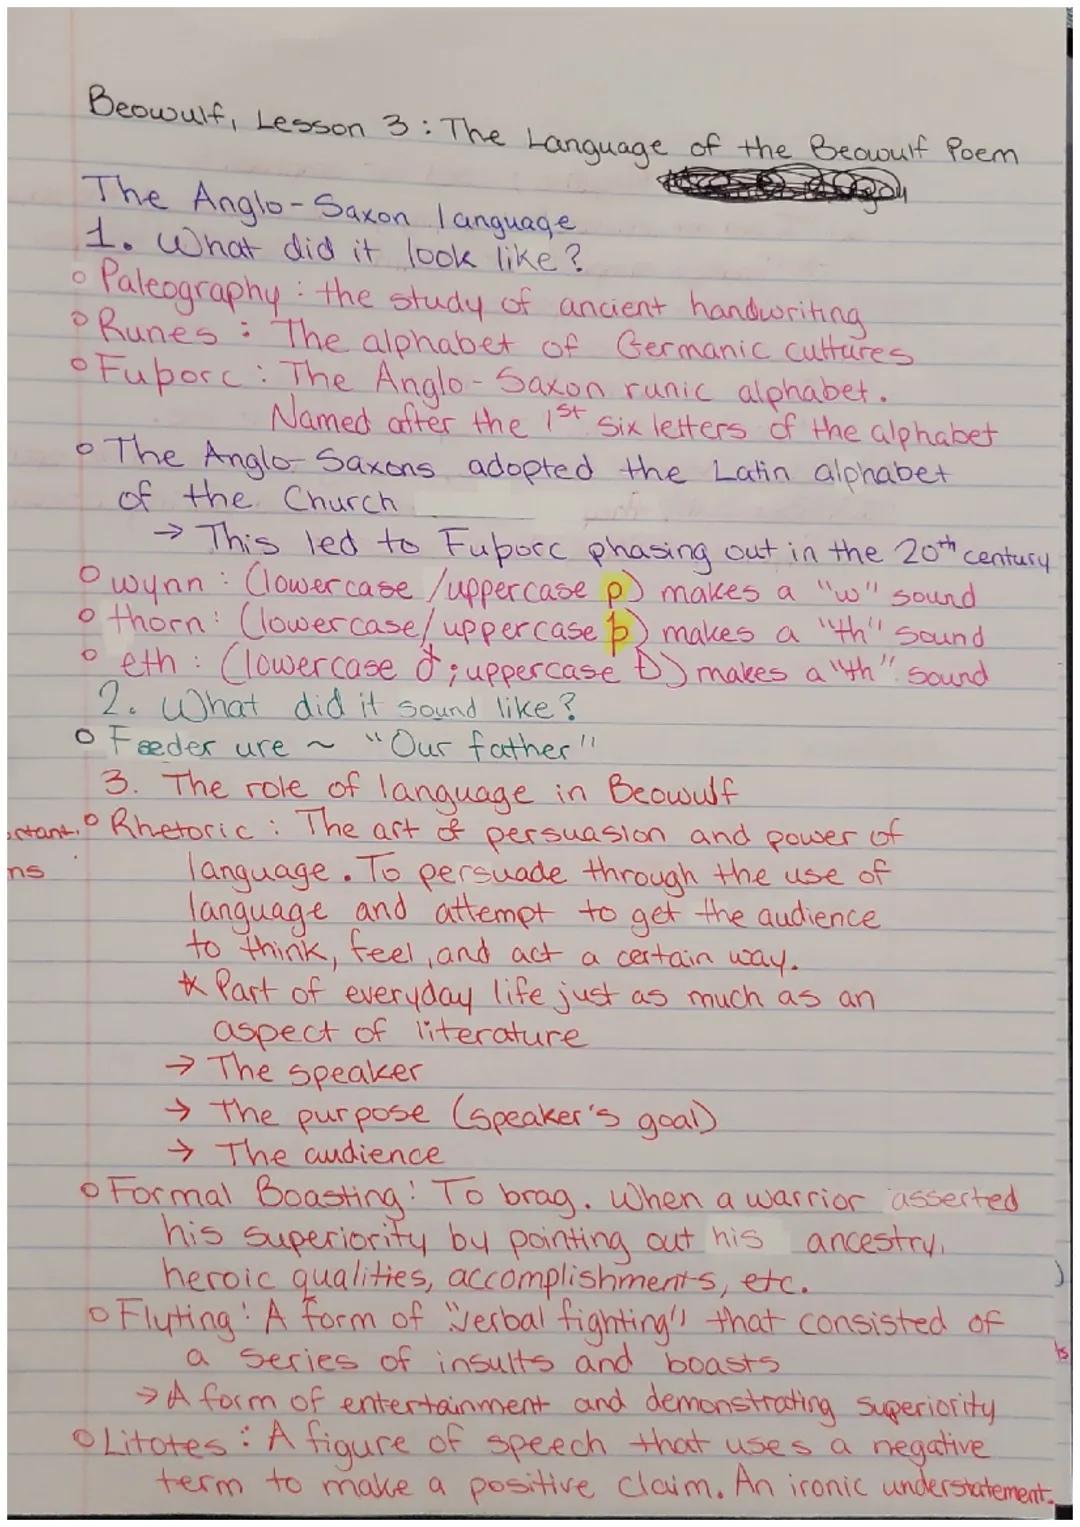 Beowulf, Lesson 3: The Language of the Beowulf Poem
The Anglo-Saxon language
1. What did it look like?
o Paleography: the study of ancient handwriting
o Runes: The alphabet of Germanic cultures
o Fuþorc: The Anglo-Saxon runic alphabet.
Named after the 1st six letters of the alphabet
o The Anglo-Saxons adopted the Latin alphabet
of the Church
→ This led to Fuþorc phasing out in the 20th century
o wynn: (lowercase/uppercase p) makes a "w" sound
o thorn: (lowercase/uppercase þ) makes a "th" sound
o eth: (lowercase ð; uppercase Ð) makes a "th" sound
2. What did it sound like?
o Faeder ure ~ "Our father"
3. The role of language in Beowulf
o Rhetoric: The art of persuasion and power of
ns
language. To persuade through the use of
language and attempt to get the audience
to think, feel, and act a certain way.
* Part of everyday life just as much as an
aspect of literature
→ The speaker
→ The purpose (speaker's goal)
→ The audience
o Formal Boasting: To brag. When a warrior asserted
his superiority by pointing out his ancestry,
heroic qualities, accomplishments, etc.
o Flyting: A form of "verbal fighting" that consisted of
a series of insults and boasts
→ A form of entertainment and demonstrating superiority
o Litotes: A figure of speech that uses a negative
term to make a positive claim. An ironic understatement.